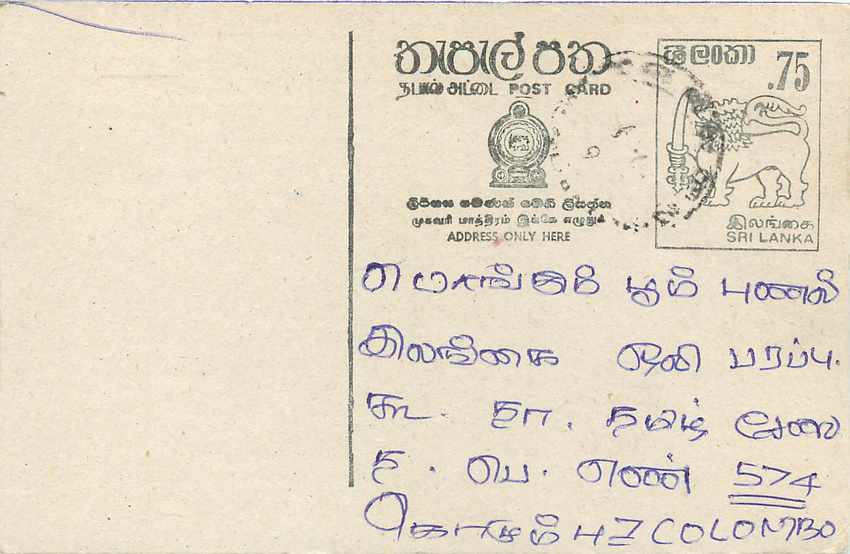 තැපැල් පත
ශ්‍රී ලංකා
.75
தபால் அட்டை POST CARD
ලිපිනය පමණක් මෙහි ලියන්න
முகவரி மாத்திரம் இங்கே எழுதுக
ADDRESS ONLY HERE
இலங்கை
SRI LANKA
பொங்கும் பூம் புனல்
இலங்கை ஒலி பரப்பு.
கூ. தா. தமிழ் சேவை
த. பெ. எண் 574
கொழும்பு 7 COLOMBO